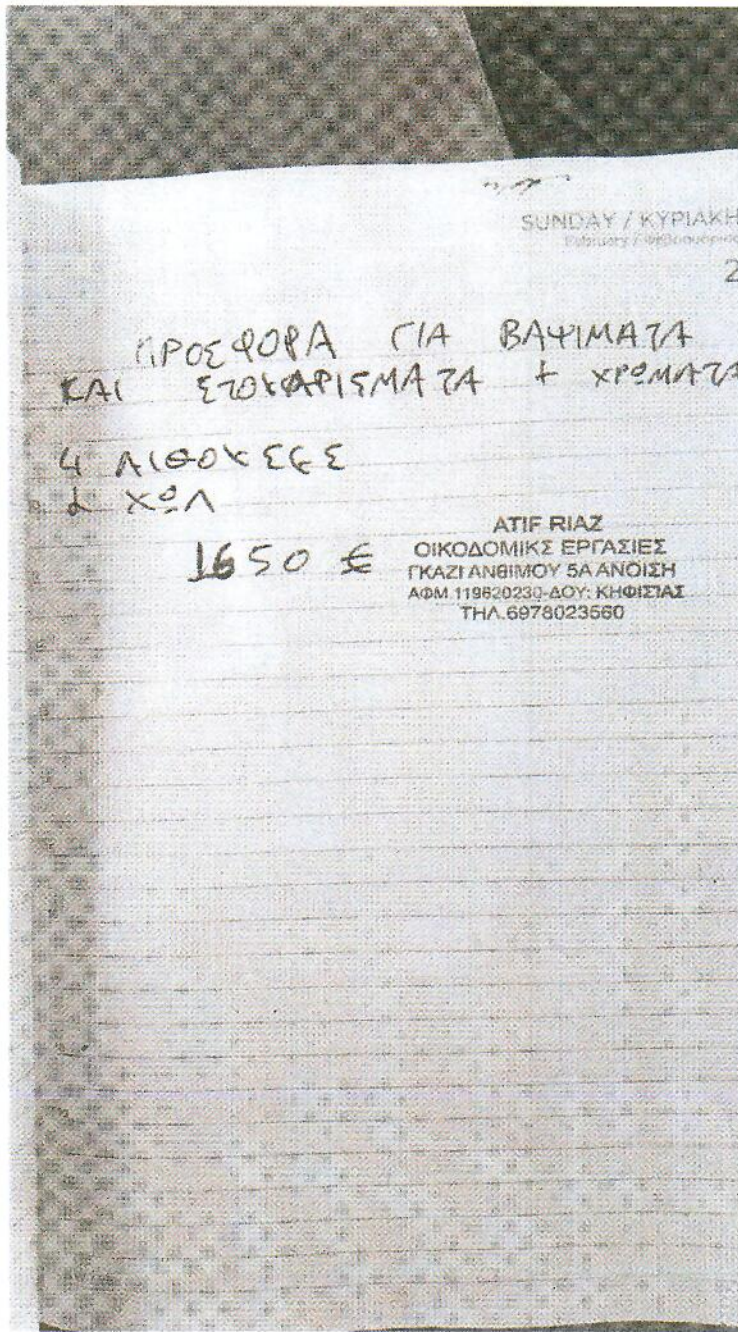 SUNDAY / ΚΥΡΙΑΚΗ
February / Φεβρουάριος
2
ΠΡΟΣΦΟΡΑ ΓΙΑ ΒΑΨΙΜΑΤΑ
ΚΑΙ ΣΤΟΚΑΡΙΣΜΑΤΑ + ΧΡΩΜΑΤΑ
4
ΧΩΛ
1650 €
ATIF RIAZ
ΟΙΚΟΔΟΜΙΚΣ ΕΡΓΑΣΙΕΣ
ΓΚΑΖΙ ΑΝΘΙΜΟΥ 5Α ΑΝΟΙΞΗ
ΑΦΜ 119820230-ΔΟΥ: ΚΗΦΙΣΙΑΣ
ΤΗΛ.6978023560